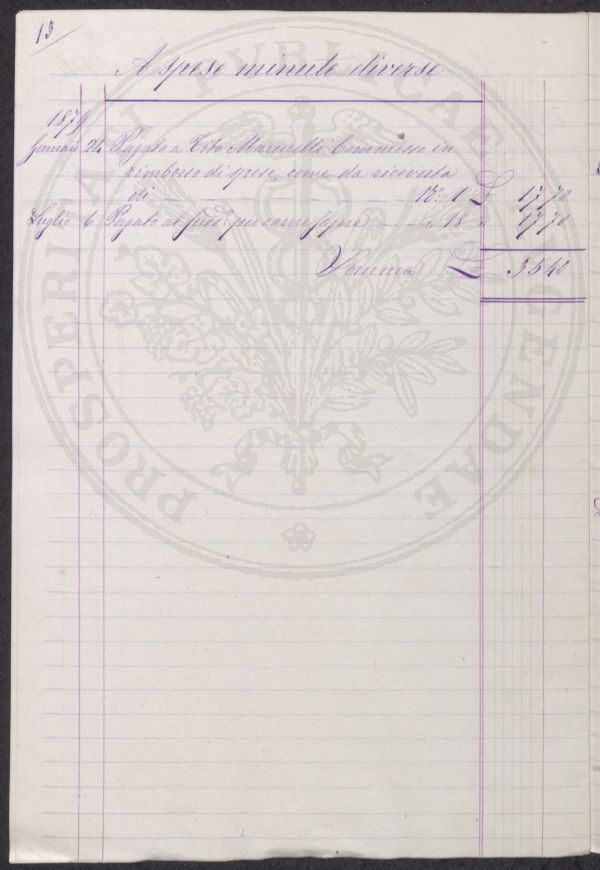 13
A spese minute diverse
1879
Gennaio 24 Pagato a Tito Marucelli Commesso in
rimborso di spese, come da ricevuta
di N: 1 £ 17,70
Luglio 6 Pagato al sudd: per come sopra „ 18 „ 17,70
Somma £ 35,40
PROSPERITATI PVBLICAE AVGENDAE